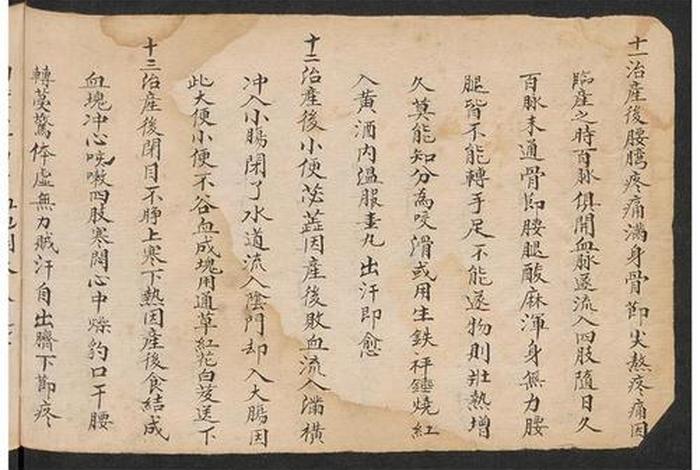 十一治產後腰臍疼痛滿身骨節尖熬疼痛因
臨產之時百脉俱開血脉逐流入四肢隨日久
百脉未通骨節腰腿酸麻渾身無力腰
腿皆不能轉手足不能逐物則壯熱增
久莫能知分為咬滑或用生鉄秤錘燒紅
入黃酒內溫服壹丸出汗即愈
十二治產後小便因產後敗血流入滿橫
冲入小腸閉了水道流入陰門却入大腸因
此大便小便不谷血成塊用通草紅花白芨送下
十三治產後閉目不睁上寒下熱因產後食結成
血塊冲心咳嗽四肢寒閉心中燥豹口干腰
轉荌驚体虛無力賊汗自出臍下節疼